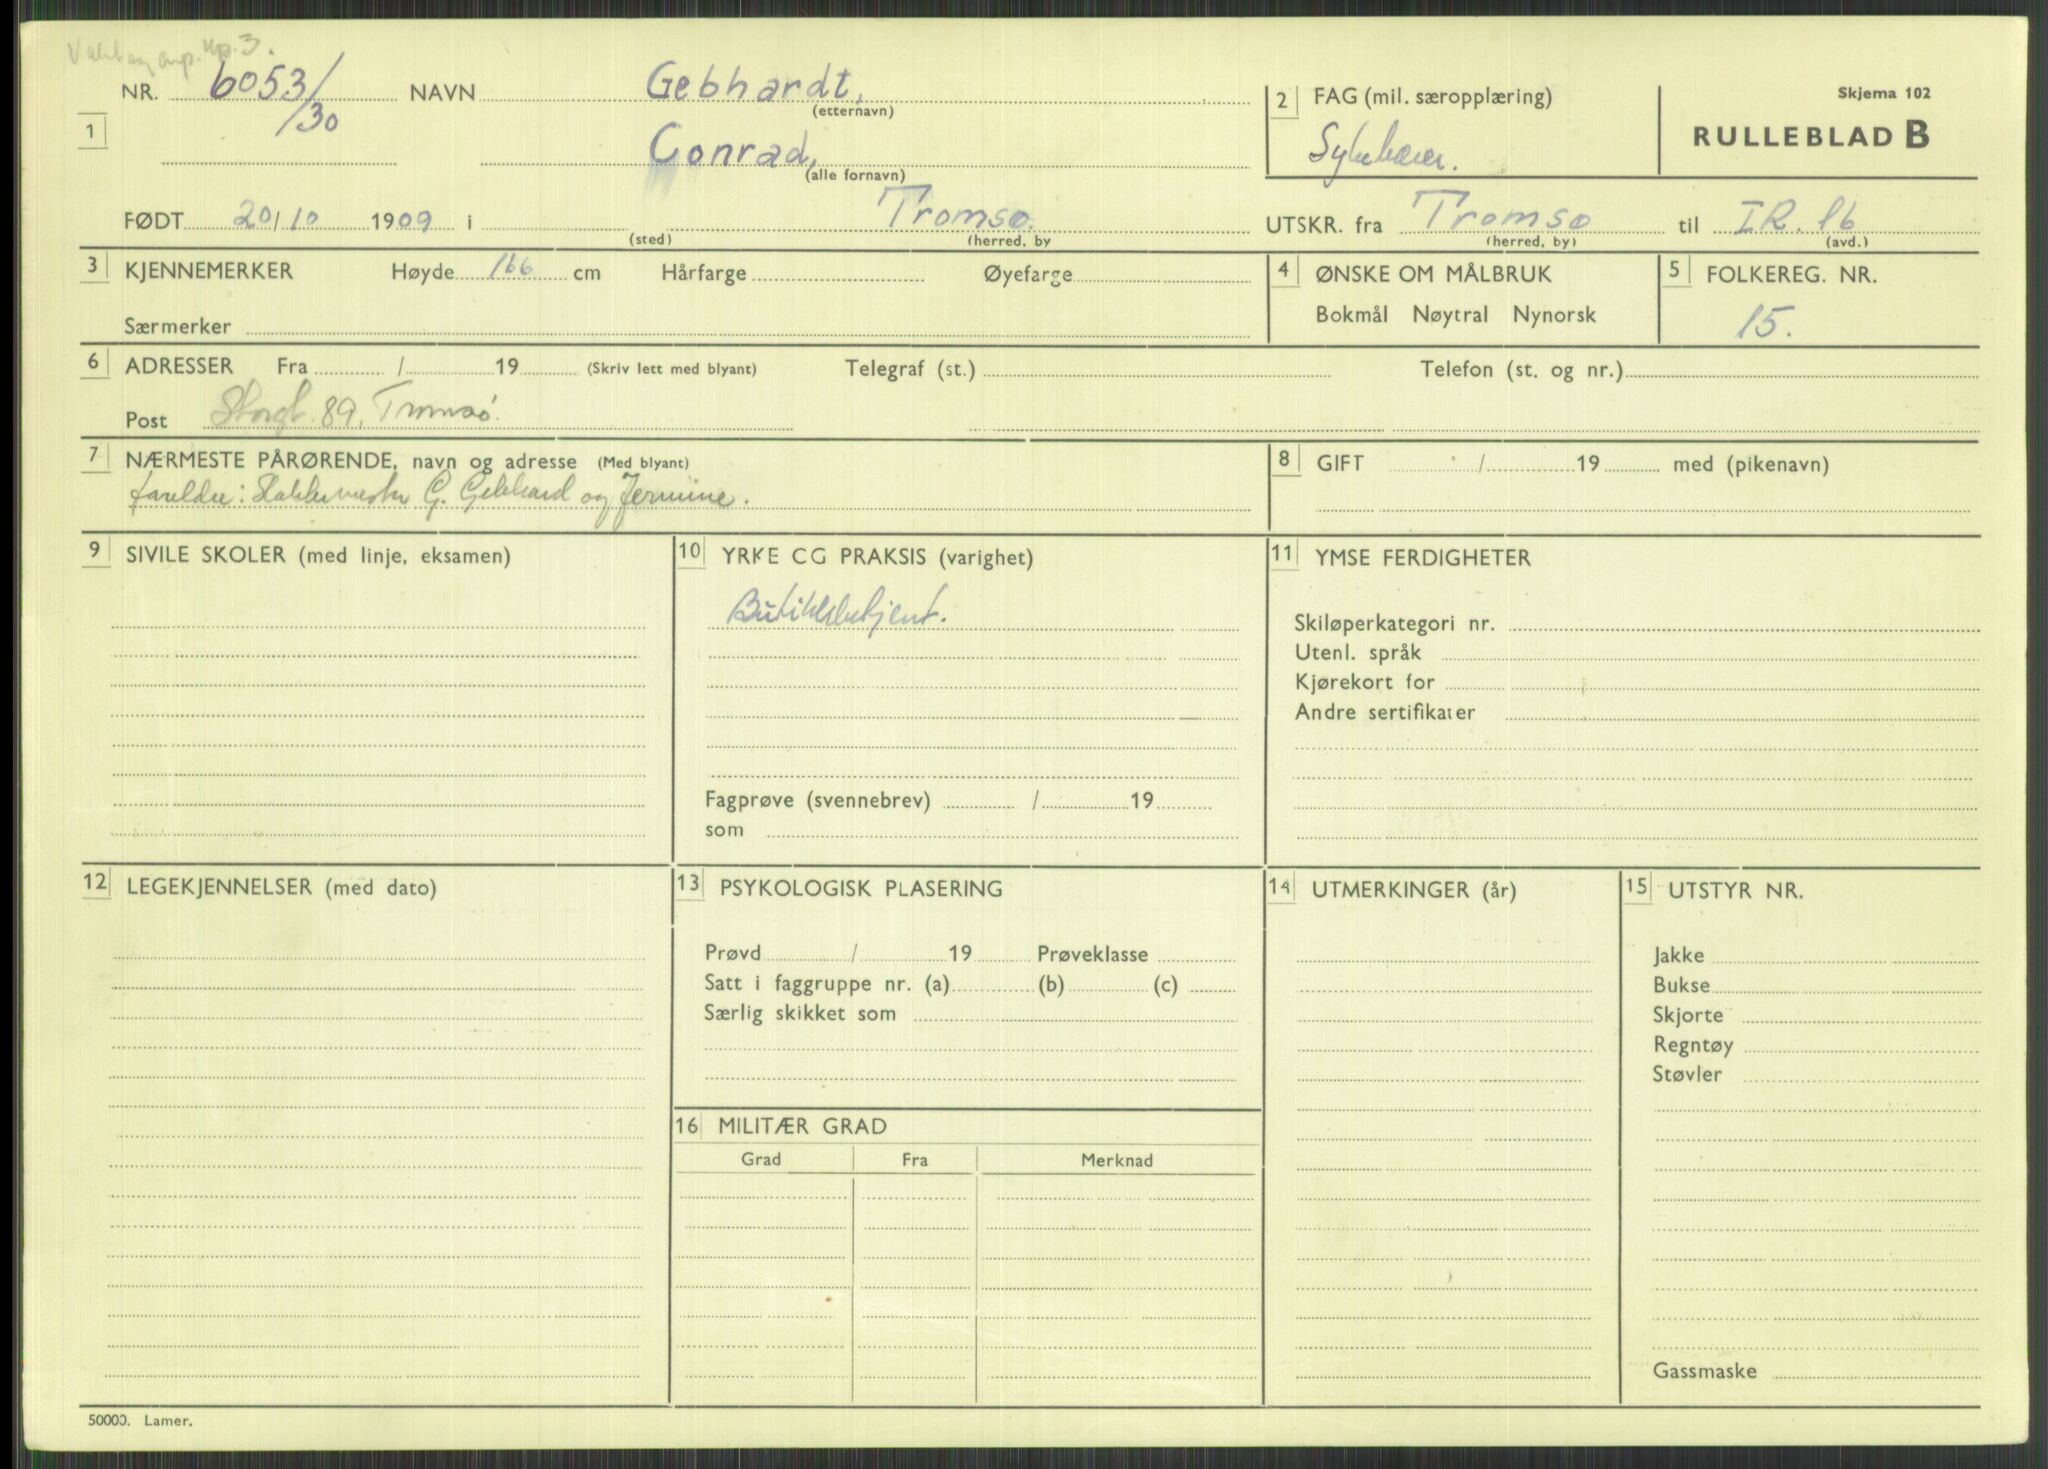 kp. 3.
NR. 6053/30 NAVN Gebhardt, (etternavn)
2 FAG (mil. særopplæring)
Skjema 102
RULLEBLAD B
1
Conrad, (alle fornavn)
Sykebærer.
FØDT 20/10 1909 i (sted) Tromsø. (herred, by
UTSKR. fra Tromsø (herred, by) til I.R. 16 (avd.)
3 KJENNEMERKER Høyde 166 cm Hårfarge Øyefarge
Særmerker
4 ØNSKE OM MÅLBRUK
Bokmål Nøytral Nynorsk
5 FOLKEREG. NR.
15.
6 ADRESSER Fra / 19 (Skriv lett med blyant) Telegraf (st.) Telefon (st. og nr.)
Post Storgt. 89, Tromsø.
7 NÆRMESTE PÅRØRENDE, navn og adresse (Med blyant)
foreldre: G. Gebhard og Jermine.
8 GIFT / 19 med (pikenavn)
9 SIVILE SKOLER (med linje, eksamen)
10 YRKE CG PRAKSIS (varighet)
Butikkbetjent.
Fagprøve (svennebrev) / 19
som
11 YMSE FERDIGHETER
Skiløperkategori nr.
Utenl. språk
Kjørekort for
Andre sertifikater
12 LEGEKJENNELSER (med dato)
13 PSYKOLOGISK PLASERING
Prøvd / 19 Prøveklasse
Satt i faggruppe nr. (a) (b) (c)
Særlig skikket som
14 UTMERKINGER (år)
15 UTSTYR NR.
Jakke
Bukse
Skjorte
Regntøy
Støvler
Gassmaske
16 MILITÆR GRAD
Grad Fra Merknad
50000. Lamer.